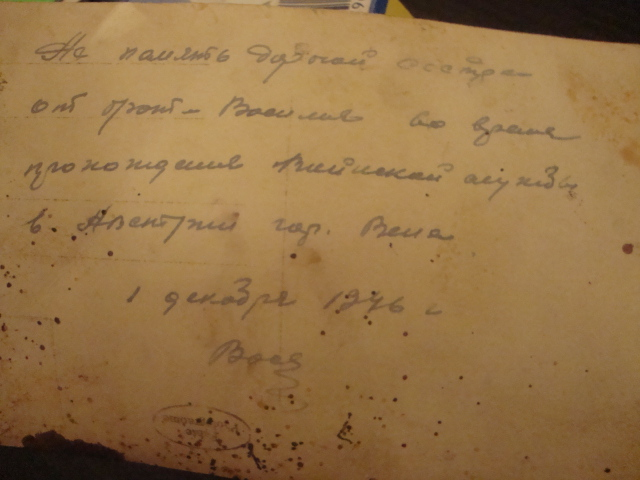 На память
от брата Василия во время
прохождения Воинской службы
в Австрии гор. Вена
1 декабря 1946 г
Вася